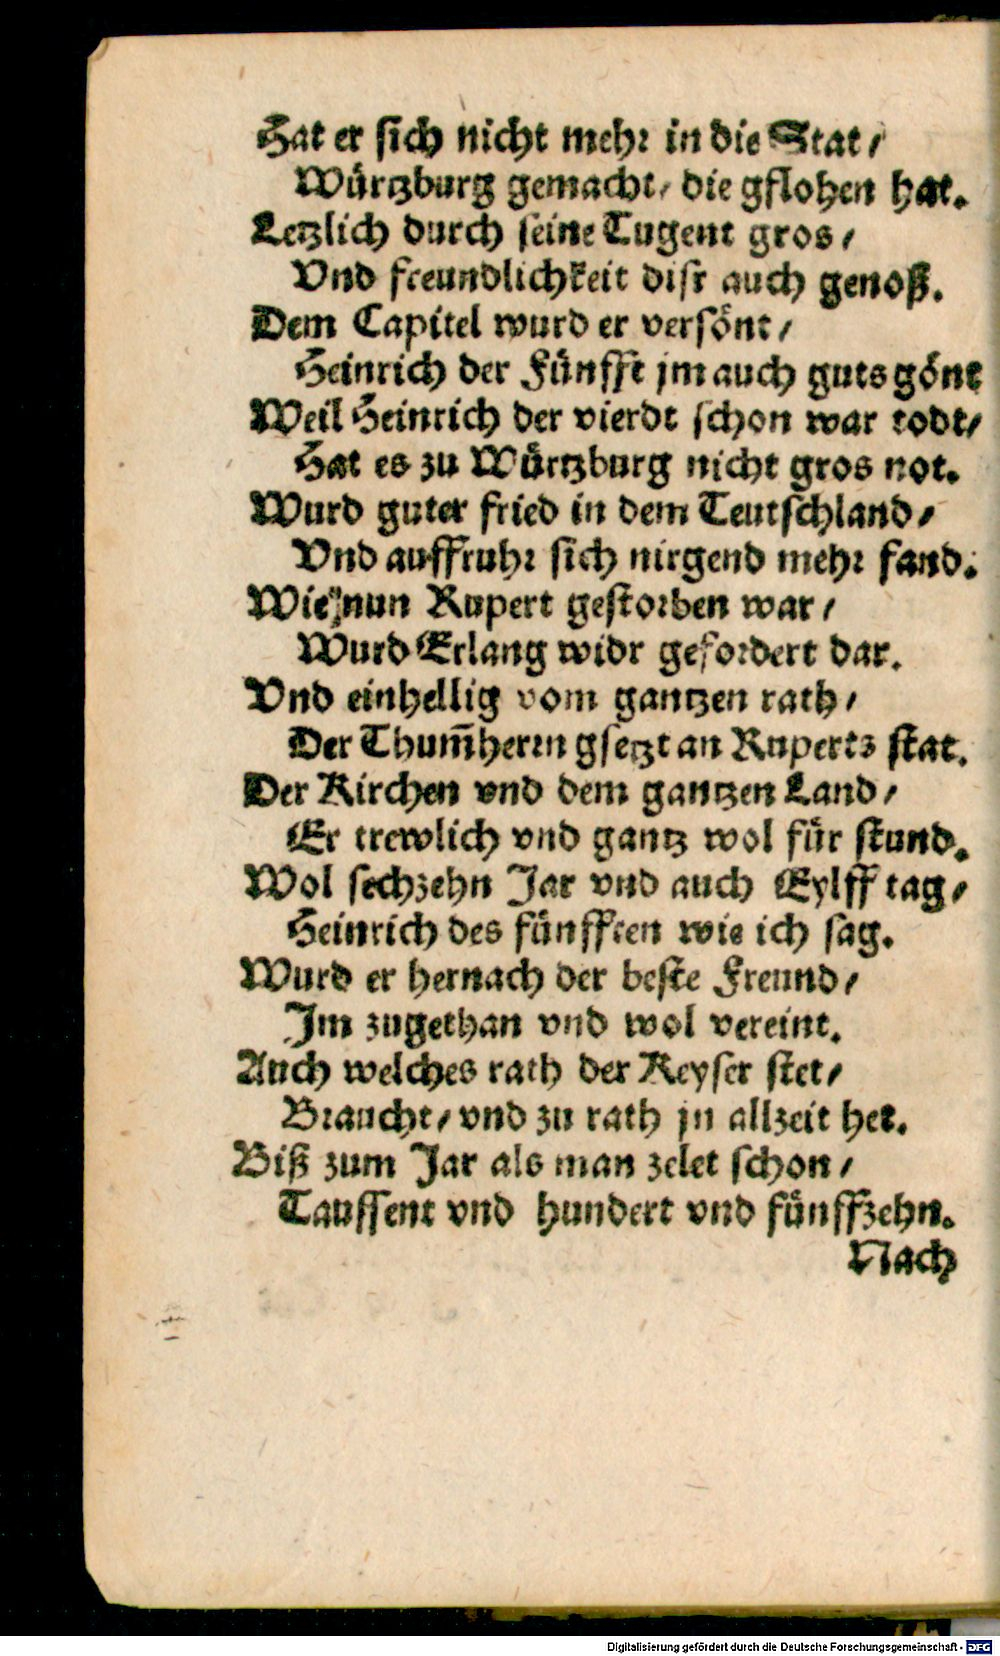 Hat er sich nicht mehr in die Stat/
Würtzburg gemacht/ die gflohen hat.
Letzlich durch seine Tugent gros/
Vnd freundlichkeit disr auch genoß.
Dem Capitel wurd er versönt/
Heinrich der Fünfft jm auch guts gönt
Weil Heinrich der vierdt schon war todt/
Hat es zu Würtzburg nicht gros not.
Wurd guter fried in dem Teutschland/
Vnd auffruhr sich nirgend mehr fand.
Wie nun Rupert gestorben war/
Wurd Erlang widr gefordert dar.
Vnd einhellig vom gantzen rath/
Der Thum̃herrn gsetzt an Ruperts stat.
Der Kirchen vnd dem gantzen Land/
Er trewlich vnd gantz wol für stund.
Wol sechzehn Jar vnd auch Eylff tag/
Heinrich des fünfften wie ich sag.
Wurd er hernach der beste Freund/
Jm zugethan vnd wol vereint.
Auch welches rath der Keyser stet/
Braucht/ vnd zu rath jn allzeit het.
Biß zum Jar als man zelet schon/
Taussent vnd hundert vnd fünffzehn.
Nach
Digitalisierung gefördert durch die Deutsche Forschungsgemeinschaft - DFG